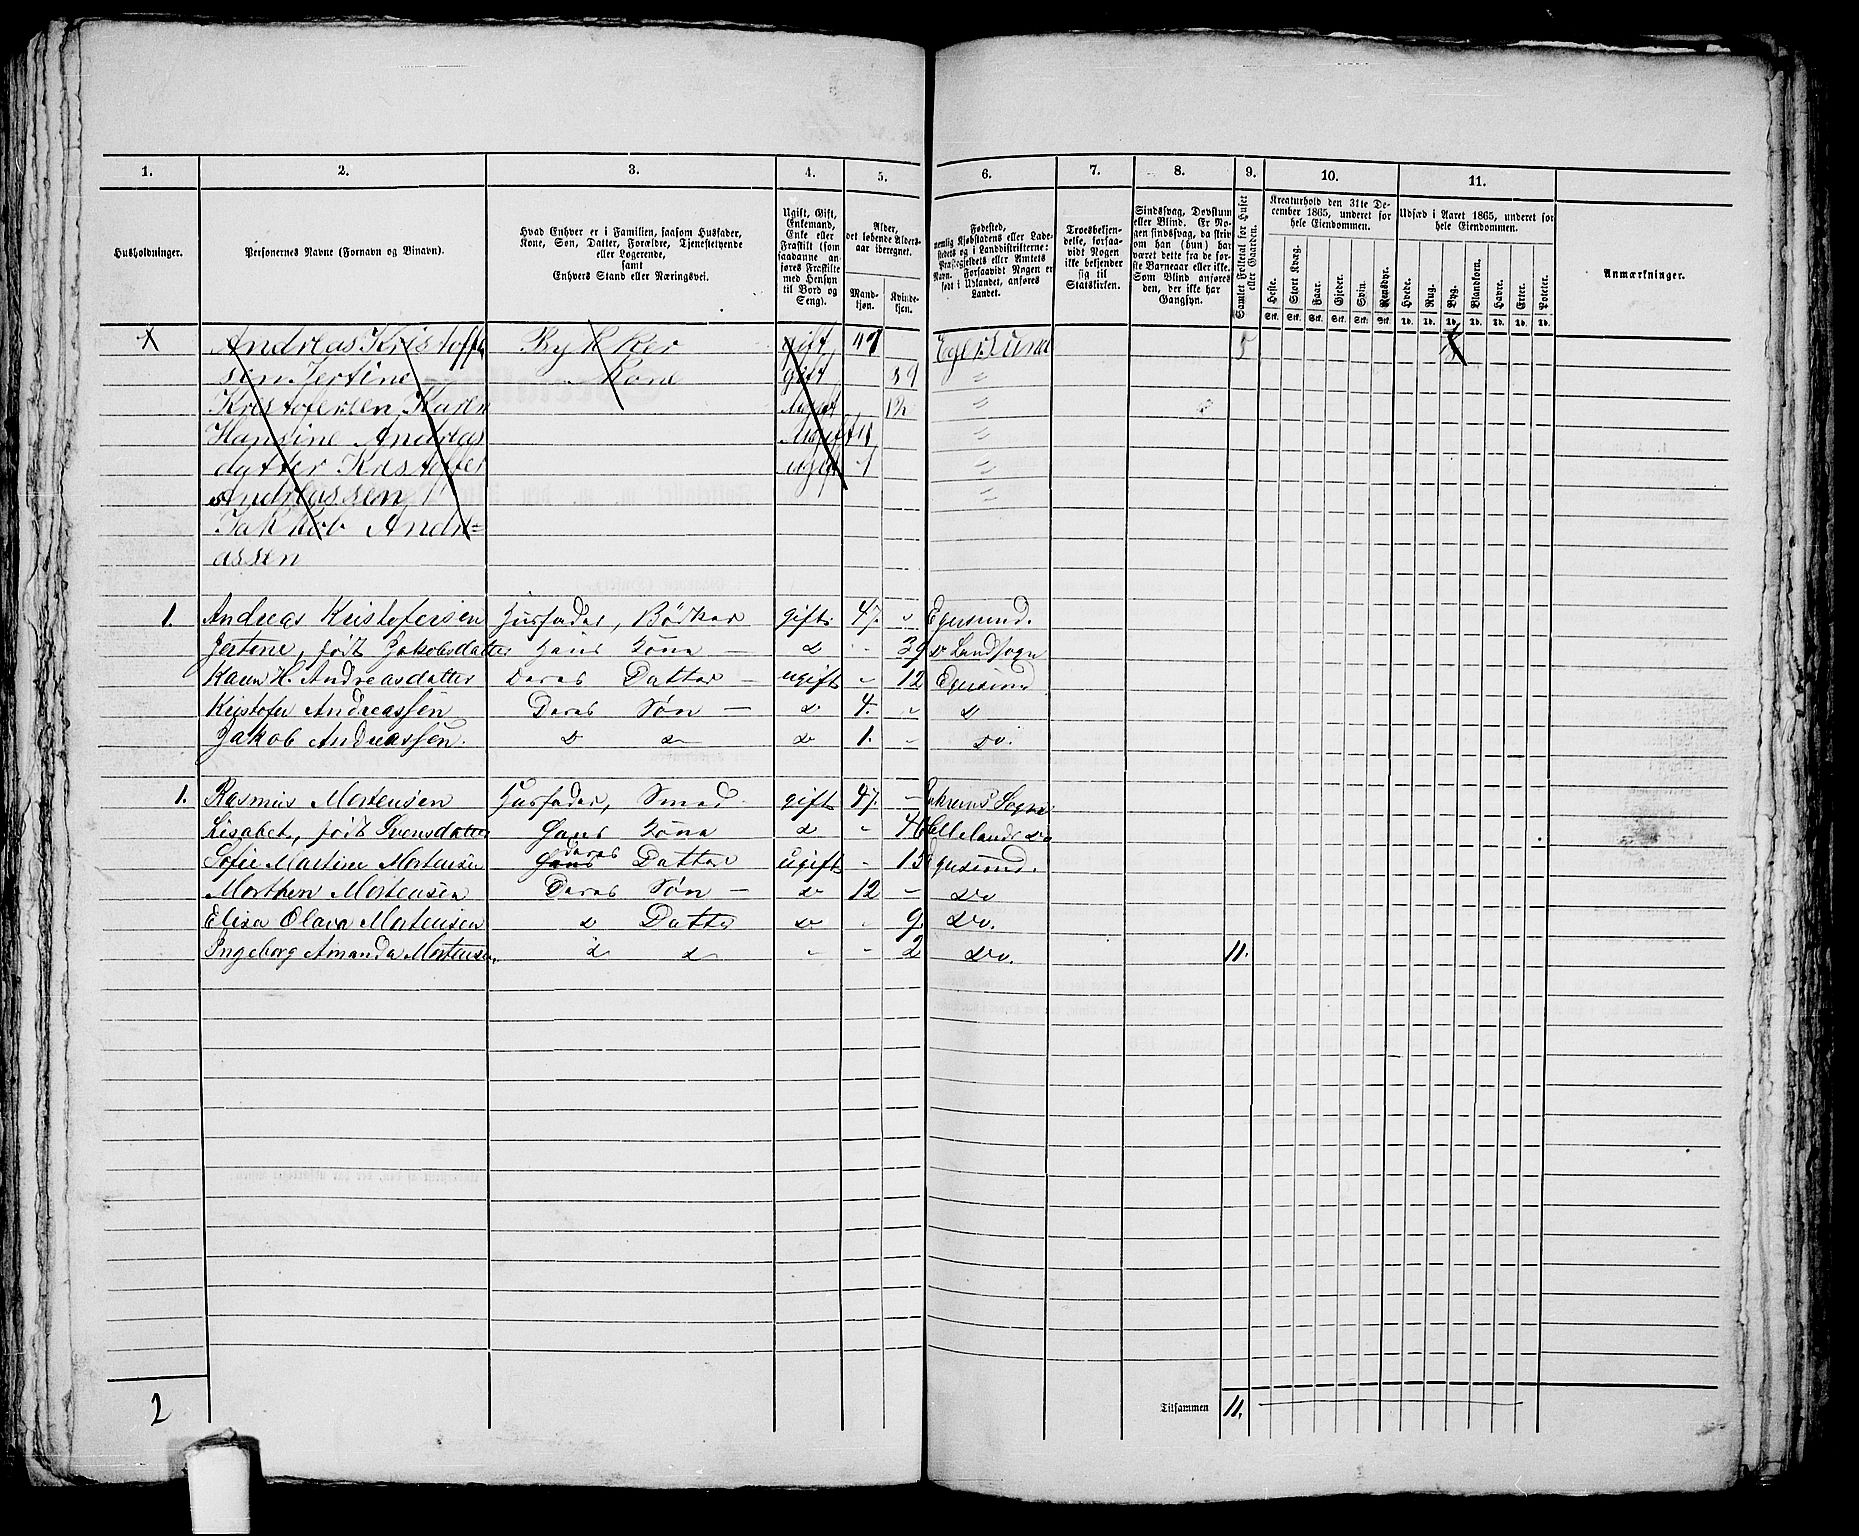 1. 2. 3. 4. 5. 6. 7. 8. 9. 10. 11.
Husholdninger.
Personernes Navne (Fornavn og Binavn).
Hvad Enhver er i Familien, saasom Husfader,
Kone, Søn, Datter, Forældre, Tjenestetyende
eller Logerende,
samt
Enhvers Stand eller Næringsvei.
Ugift, Gift,
Enkemand,
Enke eller
Fraskilt (som
saadanne an-
føres Fraskilte
med Hensyn
til Bord og
Seng).
Alder,
det løbende Alders-
aar iberegnet.
Mand-
kjøn.
Kvinde-
kjøn.
Fødested,
nemlig Kjøbstadens eller Lade-
stedets og i Landdistrikterne:
Præstegjeldets eller Amtets
Navn. Forsaavidt Nogen er
født i Udlandet, anføres
Landet.
Troesbekjen-
delse, forsaa-
vidt Nogen
ikke bekjender
sig til
Statskirken.
Sindssvag, Døvstum
eller Blind. Er No-
gen sindssvag, da skriv
om han (hun) har
været dette fra de før-
ste Barneaar eller ikke.
Som Blind anføres
den, der ikke har
Gangsyn.
Samlet Folketal for Huset
eller Gaarden.
Kreaturhold den 31te De-
cember 1865, underet for
hele Eiendommen.
Heste. Stort Kvæg. Faar. Gjeder. Svin. Rensdyr.
Stk. Stk. Stk. Stk. Stk. Stk.
Udsæd i Aaret 1865, underet for
hele Eiendommen.
Hvede. Rug. Byg. Blandkorn. Havre. Erter. Poteter.
Td. Td. Td. Td. Td. Td. Td.
Anmærkninger.
Andreas Kristoffer Bykker gift 47 Egersund 5
sen Jertine Kone gift 39 "
Kristofersen Karen Ugift 12 "
Hansine Andreas Ugift 4 "
datter Kristoffer ugift 1 "
Andreassen "
Jakkob Andre=
assen
1. Andreas Kristofersen Husfader, Bödker gift 47. " Egersund.
Jertine, født Jakobsdatter Hans Kone – do - 39 do Landsogn
Karen H. Andreasdatter Deres Datter – ugift - 12 Egersund
Kristofer Andreassen Deres Søn – do 4. - do
Jakob Andreassen. do do do 1. - do.
1. Rasmus Mortensen Husfader, Smed gift 47. - Sogn
Lisabet, født Svensdatter Hans Kone do - 46 Hellelands do
Sofie Martine Mortensen Hans deres Datter Ugift - 15 Egersund.
Morthen Mortensen Deres Søn – do 12 - do
Elisa Olava Mortensen do Datter do - 9. do.
Ingeborg Amanda Mortensen. do do - - 2 do. 11.
2
Tilsammen 11.